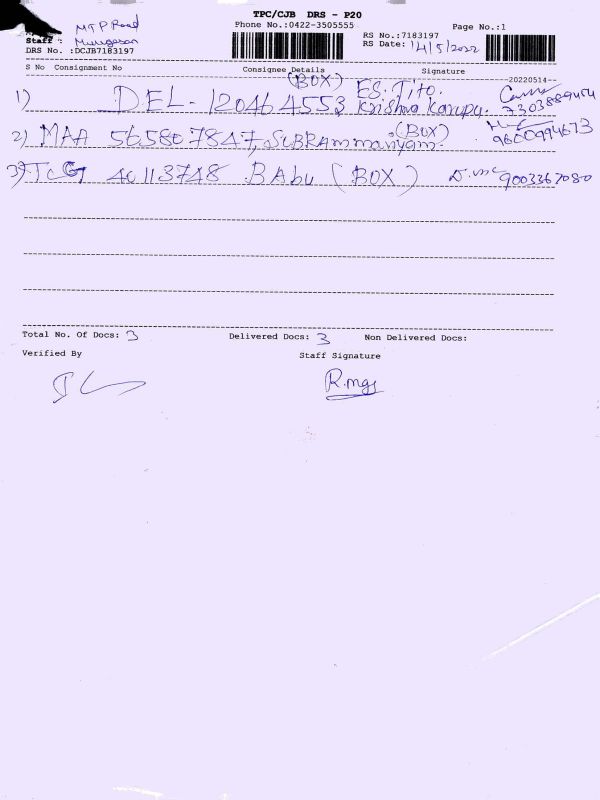 TPC/CJB DRS - P20
MTP Road
Phone No.:0422-3505555
Page No.:1
Staff : Murugesan
RS No.:7183197
DRS No. :DCJB7183197
RS Date: 14/5/2022
S No Consignment No Consignee Details Signature
--20220514--
(BOX)
1) DEL - 120464553 ES. Tito.
Krishna Karupu. 7303889454
2) MAA 565807847, SUBRAmmanyam. (BOX) 9600994673
3) TCG 40113748 BAbu (BOX) 9003367080
Total No. Of Docs: 3 Delivered Docs: 3 Non Delivered Docs:
Verified By Staff Signature
R.mgs